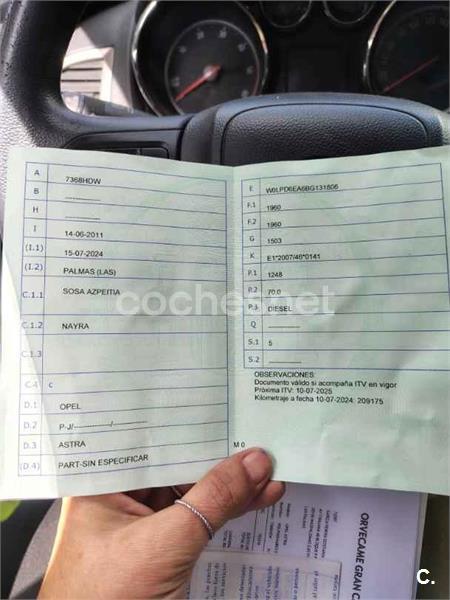 A 7368HDW
B -----------
H -----------
I 14-06-2011
(I.1) 15-07-2024
(I.2) PALMAS (LAS)
C.1.1 SOSA AZPEITIA
C.1.2 NAYRA
C.1.3
C.4 c
D.1 OPEL
D.2 P-J/------------/-----------
D.3 ASTRA
(D.4) PART-SIN ESPECIFICAR
E W0LPD6EA6BG131806
F.1 1960
F.2 1960
G 1503
K E1*2007/46*0141
P.1 1248
P.2 70.0
P.3 DIESEL
Q -----------
S.1 5
S.2 -----------
OBSERVACIONES:
Documento válido si acompaña ITV en vigor
Próxima ITV: 10-07-2025
Kilometraje a fecha 10-07-2024: 209175
M 0
coches.net
ORVECAME GRAN C
C.